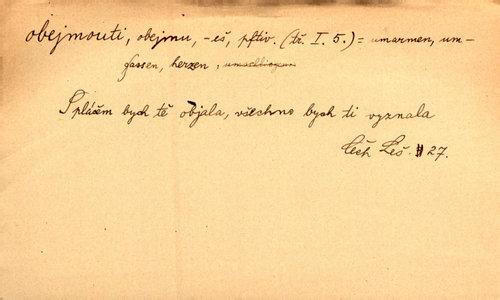 obejmouti, obejmu, -eš, pftiv. (tř. I. 5.) = umarmen, um-
fassen, herzen, umschlingen
S pláčem bych tě objala, všechno bych ti vyznala
Čech Leš. 27.